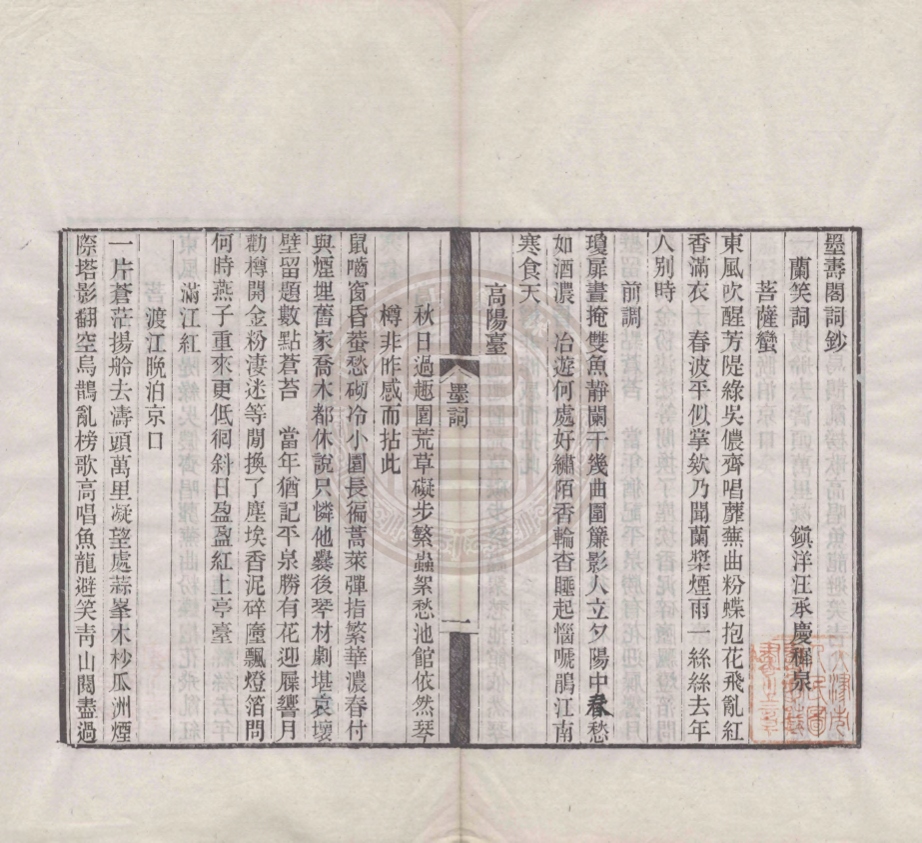 墨壽閣詞鈔
蘭笑詞　鎮洋汪承慶穉泉
菩薩蠻
東風吹醒芳隄綠吳儂齊唱蘼蕪曲粉蝶抱花飛亂紅
香滿衣　春波平似掌欸乃聞蘭槳煙雨一絲絲去年
人別時
前調
瓊扉晝掩雙魚靜闌干幾曲圍簾影人立夕陽中春愁
如酒濃　冶遊何處好繡陌香輪杳睡起惱嗁鵑江南
寒食天
高陽臺
秋日過趣園荒草礙步繁蟲絮愁池館依然琴
樽非昨感而拈此
鼠嚙窗昏蛬愁砌冷小園長徧蒿萊彈指繁華濃春付
與煙埋舊家喬木都休說只憐他爨後琴材劇堪哀壞
壁留題數點蒼苔　當年猶記平泉勝有花迎屧響月
勸樽開金粉淒迷等閒換了塵埃香泥碎墮飄燈箔問
何時燕子重來更低徊斜日盈盈紅上亭臺
滿江紅
渡江晚泊京口
一片蒼茫揚舲去濤頭萬里凝望處蒜峯木杪瓜洲煙
際塔影翻空烏鵲亂榜歌高唱魚龍避笑靑山閱盡過
墨詞
一